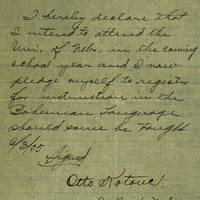 I hereby declare that
I intend to attend the
Uni. of Nebr. in the coming
school year and I now
pledge myself to register
for instruction in the
Bohemian Language
should same be taught
6/3/05
Signed
Otto Kotouc.